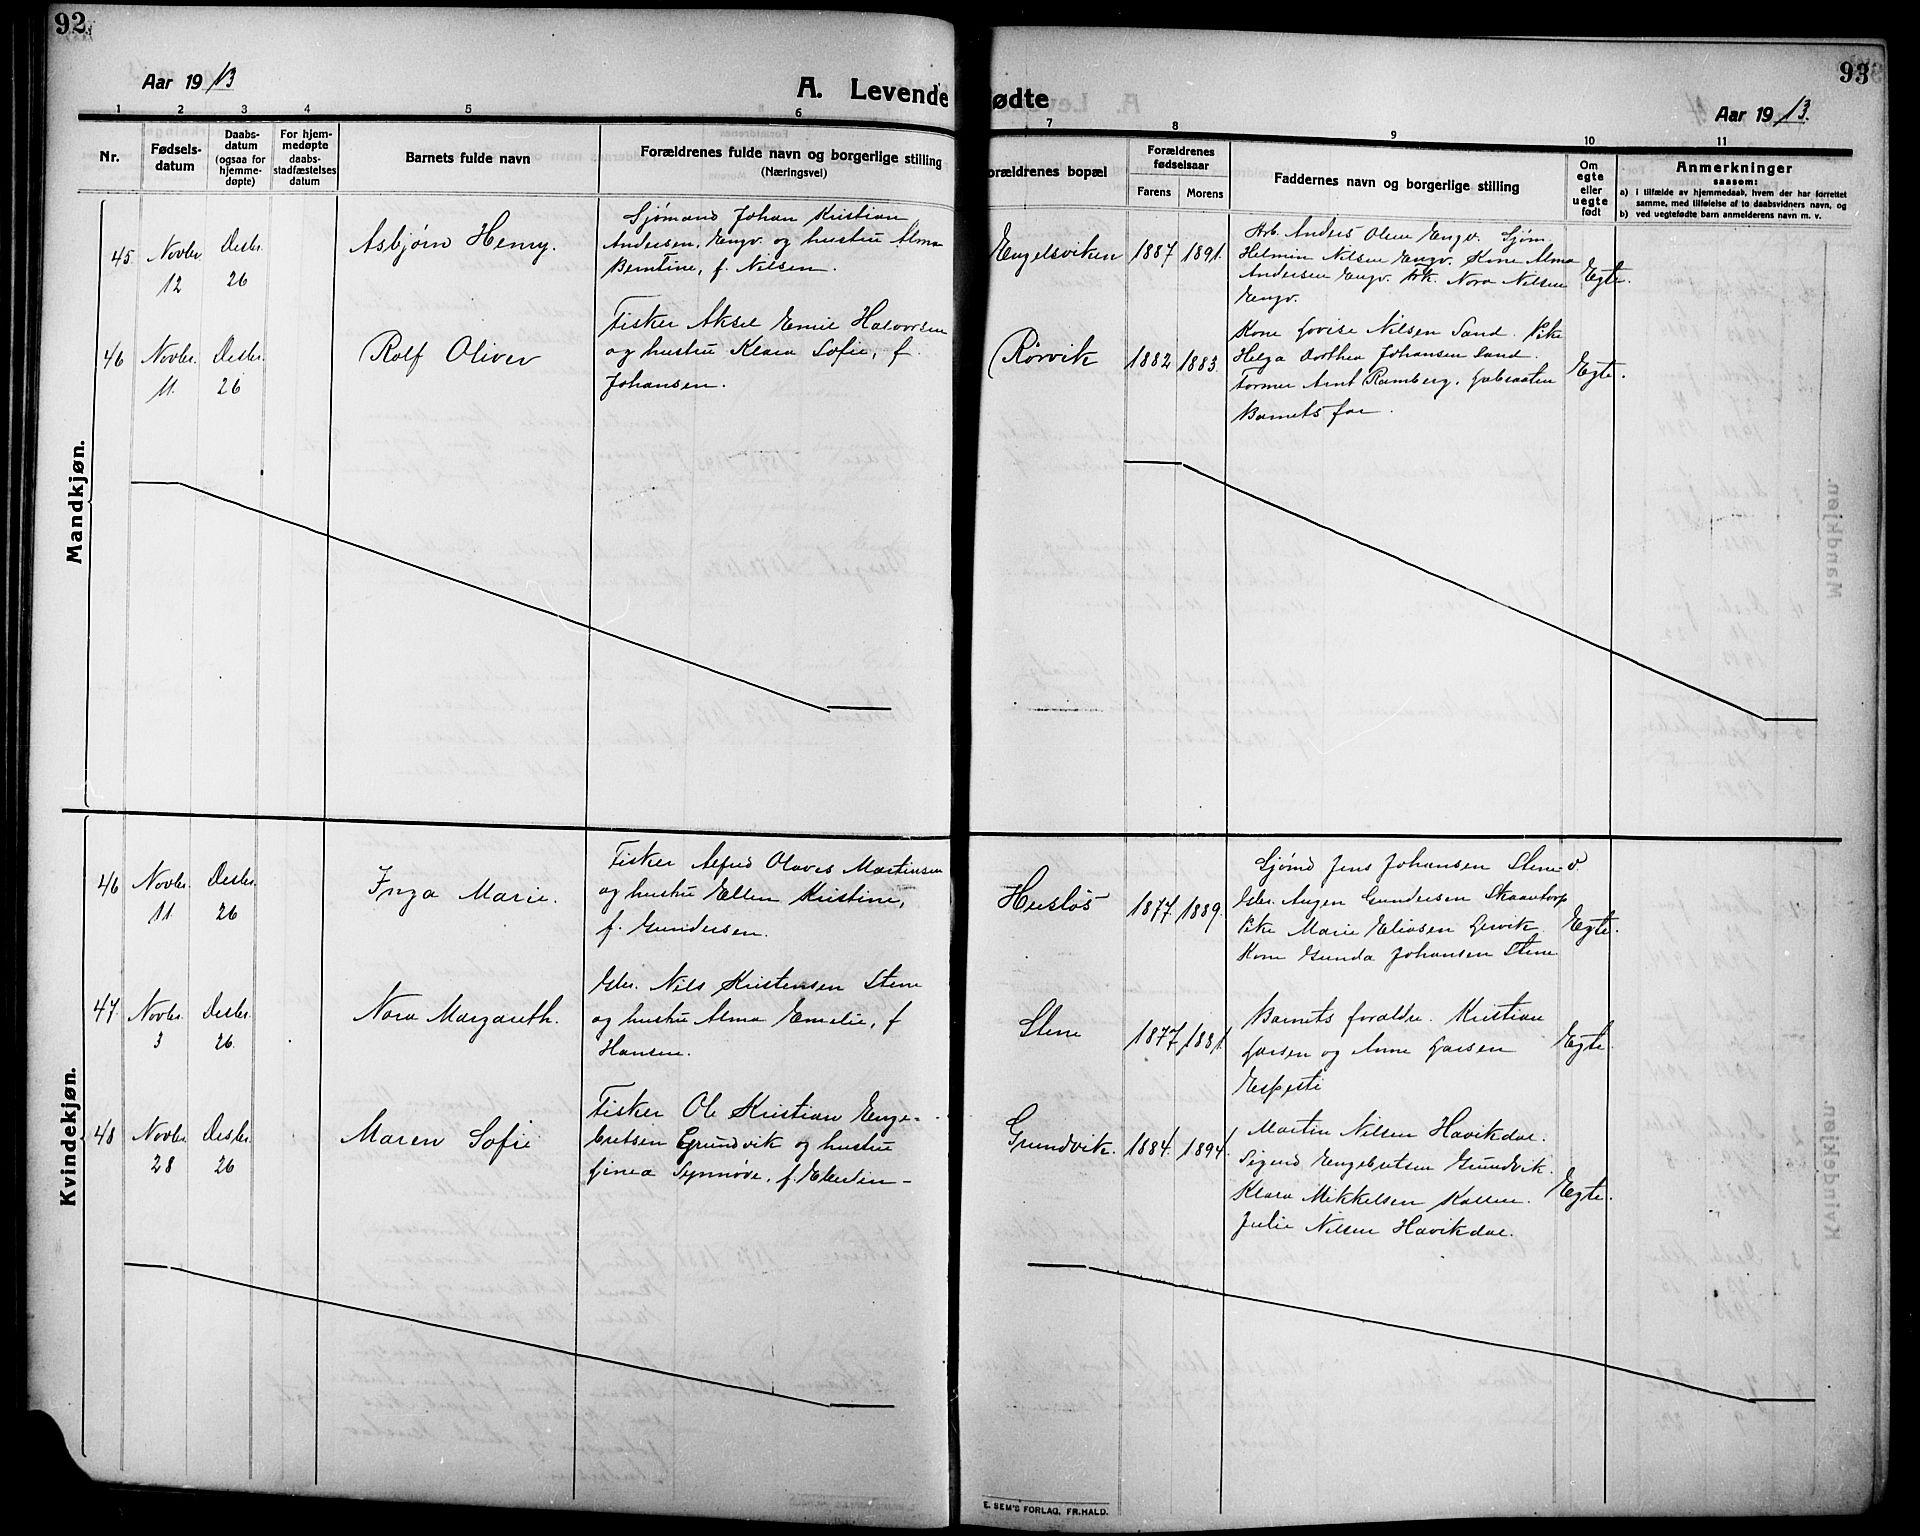 92
Aar 1913
A. Levende
1
2
3
4
5
6
Nr.
Fødsels-
datum
Daabs-
datum
(ogsaa for
hjemme-
døpte)
For hjem-
medøpte
daabs-
stadfæstelses
datum
Barnets fulde navn
Forældrenes fulde navn og borgerlige stilling
(Næringsvei)
Mandkjøn.
45
Novbr.
12
Desbr.
26
Asbjørn Henry.
Sjømand Johan Kristian
Andersen, Engv. og hustru Alma
Berntine, f. Nilsen.
46
Novbr.
11.
Desbr.
26
Rolf Oliver
Fisker Aksel Emil Halvorsen
og hustru Klara Sofie, f.
Johansen.
Kvindekjøn.
46
Novbr.
11
Desbr.
26
Inga Marie.
Fisker Alfred Olaves Martinsen
og hustru Ellen Kristine,
f. Gundersen.
47.
Novbr.
3
Desbr.
26.
Nora Margareth.
Gbr. Nils Kristensen Stene
og hustru Alma Emelie, f
Hansen.
48
Novbr.
28
Desbr.
26
Maren Sofie
Fisker Ole Kristian Enge-
bretsen Grundvik og hustru
Linea Synnøve, f.
93
ødte
Aar 1913.
7
8
9
10
11
orældrenes bopæl
Forældrenes
fødselsaar
Farens
Morens
Faddernes navn og borgerlige stilling
Om
egte
eller
uegte
født
Anmerkninger
saasom:
a) i tilfælde av hjemmedaab, hvem der har forrettet
samme, med tilføielse af to daabsvidners navn, og
b) ved uegtefødte barn anmelderens navn m. v.
Engelsviken
1887
1891.
Arb. Anders Olsen Engv. Sjøm.
Helmin Nilsen Engv. Kone Alma
Andersen Engv. Frk. Nora Nilsen
Engv.
Egte.
Rørvik
1882
1883.
Kone Lovise Nilsen Sand. Pike
Helga Dorthea Johansen Sand.
Former Arnt Ramberg,
Barnets far.
Egte.
Husløs
1877.
1889.
Sjømd Jens Johansen Stene
Gbr. Gundersen Skaartorp
Pike Marie Eliasen Lervik.
Kone Gunda Johansen Stene
Egte.
Stene
1877
1881.
Barnets forældre. Kristian
Larsen og Anne Larsen
Egte.
Grundvik.
1884.
1894.
Martin Nilsen Havikdal.
Sigurd Engebretsen Grundvik.
Klara Mikkelsen
Julie Nilsen Havikdal.
Egte.
E. SEM'S FORLAG, FR.HALD.